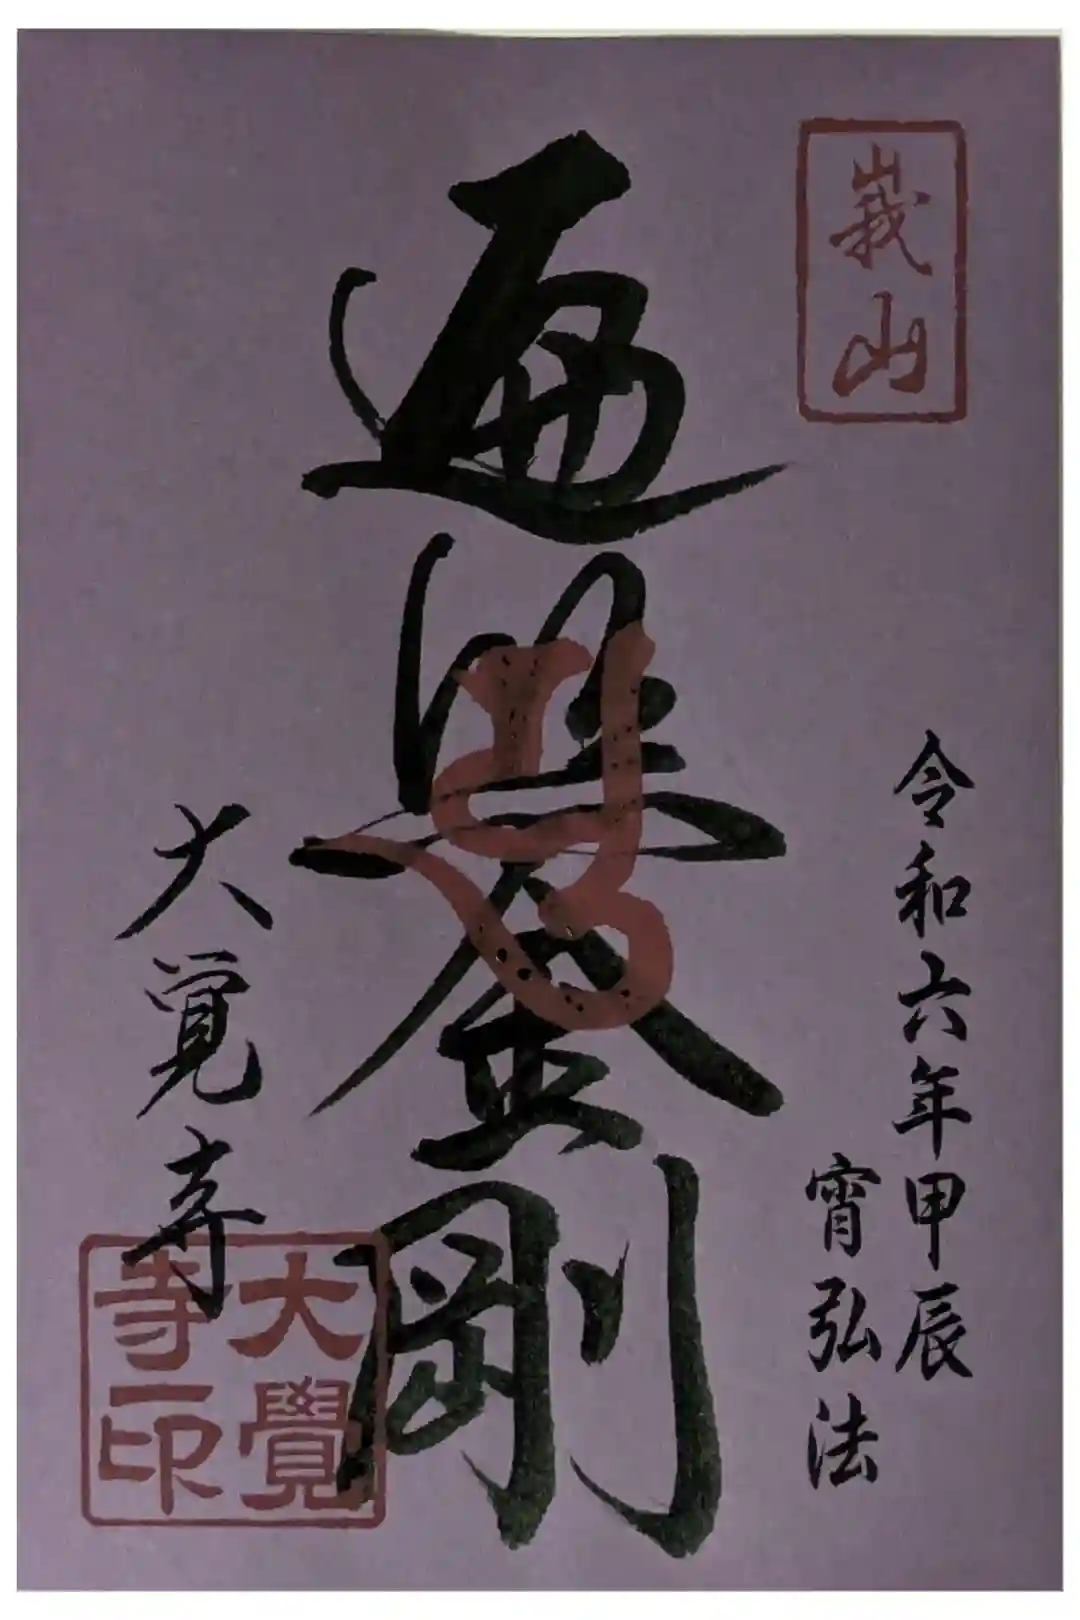 峩山
令和六年甲辰
宵弘法
遍照金剛
大覚寺
大覺
寺印